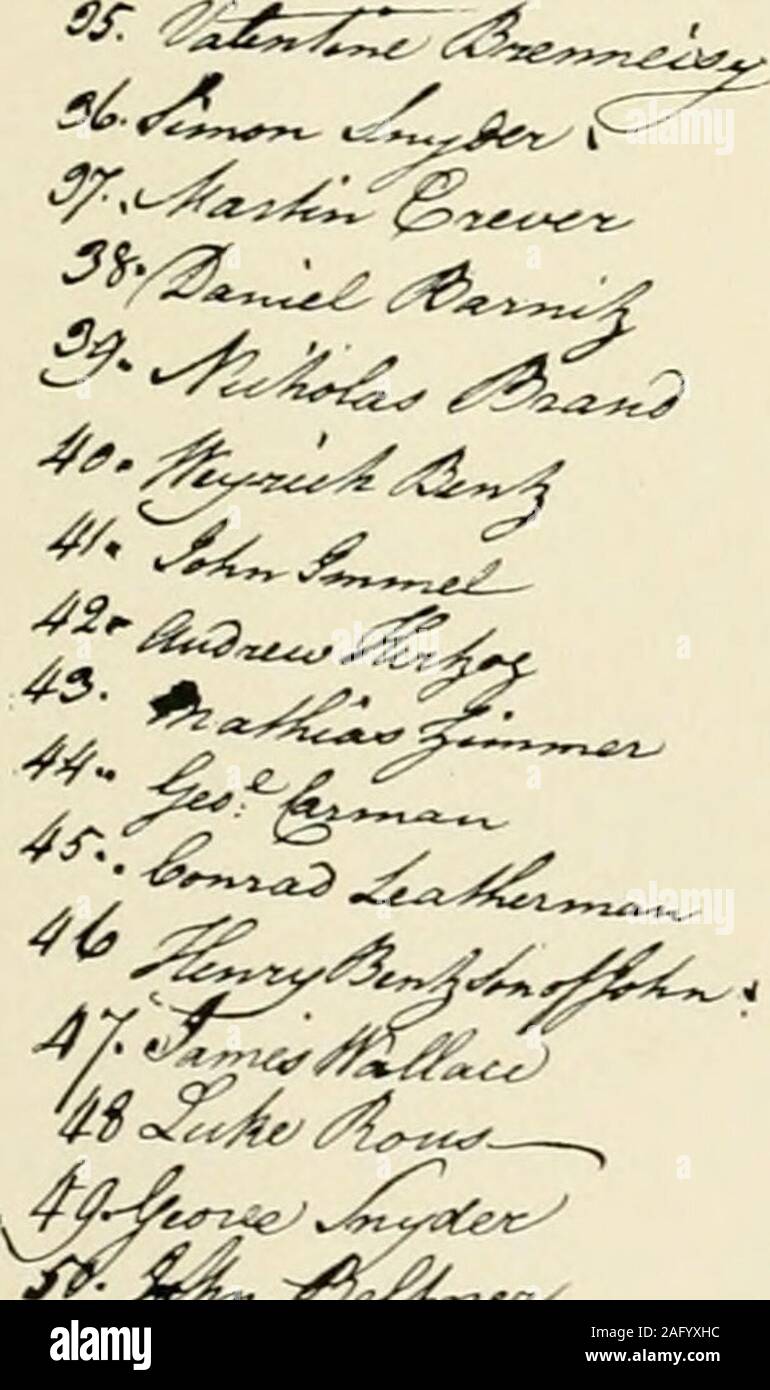 35. Valentine Brenneisy
36. Simon Snyder
37. Martin Crever
38. Daniel Barnitz
39. Nicholas Brand
40. Weyrich Bentz
41. John Immel
42. Andrew Hertzog
43. Mathias Zimmer
44. Geo: Carman
45. Conrad Leatherman
46 Henry Bentz son of John
47. James Wallace
48 Luke Rous
49. George Snyder
50. John
a alamy
Image ID: 2AFYXHC
www.alamy.com